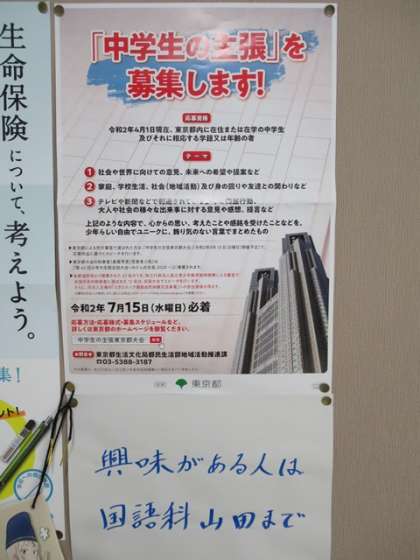 「中学生の主張」を
募集します!
応募資格
令和2年4月1日現在、東京都内に在住または在学の中学生
及びそれに相応する学籍又は年齢の者
テーマ
1 社会や世界に向けての意見、未来への希望や提案など
2 家庭、学校生活、社会(地域活動)及び身の回りや友達との関わりなど
3 テレビや新聞などで報道されて
大人や社会の様々な出来事に対する意見や感想、提言など
上記のような内容で、心からの思い、考えたことや感銘を受けたことなどを、
少年らしい自由でユニークに、飾り気のない言葉でまとめたもの
令和2年7月15日(水曜日)必着
応募方法・応募様式・募集スケジュールなど、
詳しくは東京都のホームページを御覧ください。
中学生の主張東京都大会
東京都生活文化局都民生活部地域活動推進課
☎03-5388-3187
東京都
生命保険について、考えよう。
興味がある人は
国語科山田まで